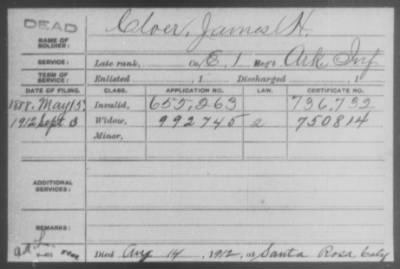 DEAD
NAME OF SOLDIER: Cloer, James H.
SERVICE: Late rank, Co. E, 1 Reg't Ark Inf
TERM OF SERVICE: Enlisted , 1 Discharged , 1
DATE OF FILING. CLASS. APPLICATION NO. LAW. CERTIFICATE NO.
1888, May 15 Invalid, 655,263 736,732
1912 Sept 3 Widow, 992745 a 750814
Minor,
ADDITIONAL SERVICES:
REMARKS:
Died Aug 14, 1912, at Santa Rosa Caly